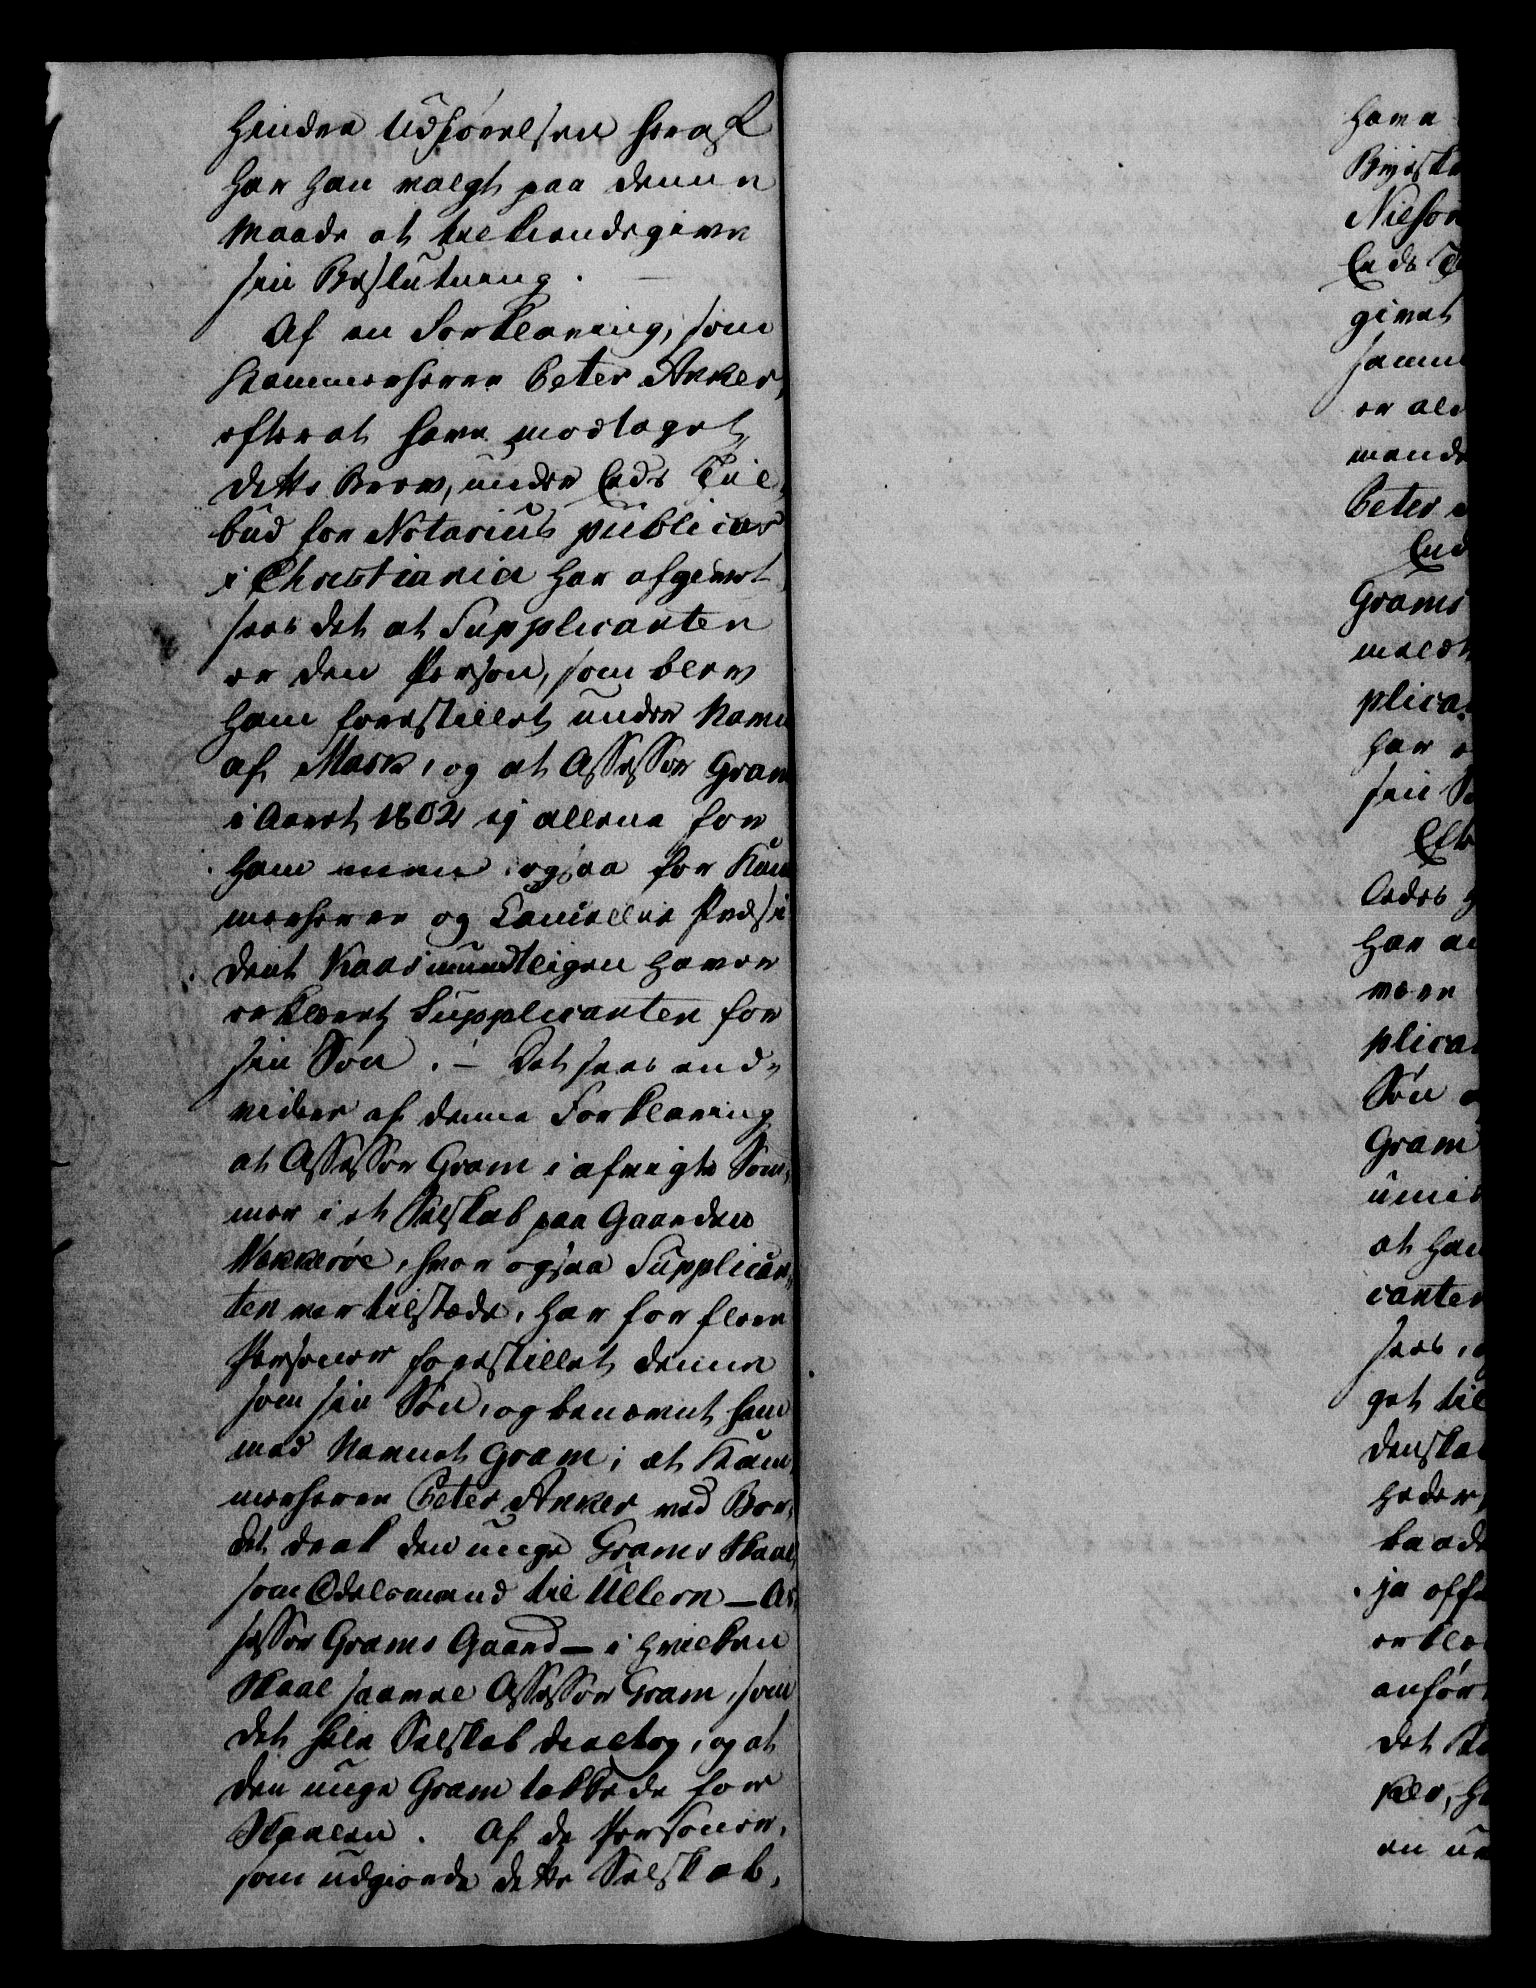 hindre Udførelsen heraf
har han valgt paa denne
Maade at tilkiendegive
sin Beslutning. —
Af en Forklaring, som
Kammerherre Peter Anker,
efterat have modtaget
dette Brev, under Eeds Til-
bud for Notarius publicus
i Christiania har afgivet
sees det at Supplicanten
er den Person, som blev
ham forestillet under Navn
af Mask, og at Assessor Gram
i Aaret 1802 ej allene for
ham men ogsaa for Kam
merherre og Cancellie Præsi
dent Kaas mundtligen haver
erklæret Supplicanten for
sin Søn. — Det sees end-
videre af denne Forklaring
at Assessor Gram i afvigte Som-
mer i et Selskab paa Gaarden
Vækkerøe, hvor ogsaa Supplican-
ten var tilstæde, har for flere
Personer forestillet denne
som sin Søn, og benævnt ham
med Navnet Gram; at Kam-
merherre Peter Anker ved Bor-
det drak den unge Grams Skaal,
som Odelsmand til Ullern — As-
sessor Grams Gaard — i hvilken
Skaal saavel Assessor Gram, som
det hele Selskab deeltog, og at
den unge Gram takkede for
Skaalen. Af de Personer,
som udgiorde dette Selskab,
have
Nielson
Eeds
givet
samm
er al
Peter
Grams
meldt
plica
har
sin
Eeds
har
være
plica
Søn
Gram
umid
at han
canten
sees,
get til
denska
heder,
baade
ja off
erklæ
anfør
det
ker, h
en un